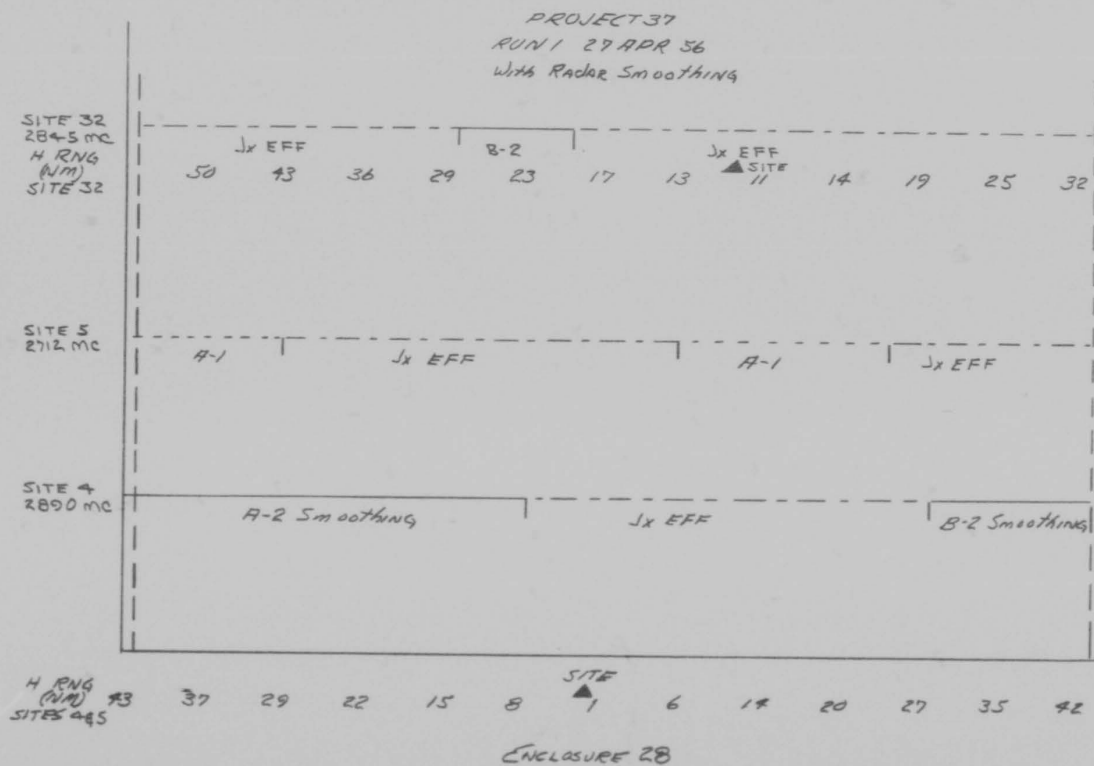 PROJECT 37
RUN 1 27 APR 56
With RADAR Smoothing
SITE 32
2845 MC
H RNG
(NM)
SITE 32
Jx EFF
B-2
Jx EFF
▲ SITE
50 43 36 29 23 17 13 11 14 19 25 32
SITE 5
2712 MC
A-1
Jx EFF
A-1
Jx EFF
SITE 4
2890 MC
A-2 Smoothing
Jx EFF
B-2 Smoothing
H RNG
(NM)
SITES 4&5
SITE
▲
43 37 29 22 15 8 1 6 14 20 27 35 42
ENCLOSURE 28